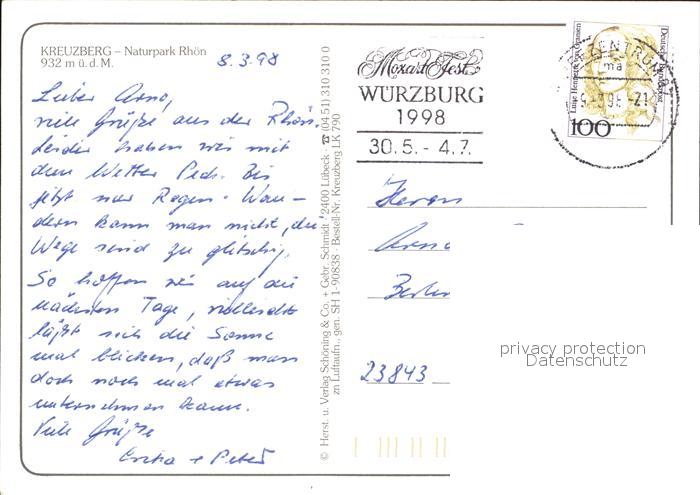 KREUZBERG – Naturpark Rhön
932 m ü. d. M.
8.3.98
Lieber Arno,
viele Grüße aus der Rhön.
Leider haben wir mit
dem Wetter Pech. Bis
jetzt nur Regen. Wan-
dern kann man nicht, die
Wege sind zu glitschig.
So hoffen wir auf die
nächsten Tage, vielleicht
läßt sich die Sonne
mal blicken, daß man
doch noch mal etwas
unternehmen kann.
Viele Grüße
Erika + Peter
© Herst. u. Verlag Schöning & Co. + Gebr. Schmidt · 2400 Lübeck · ☎ (04 51) 310 310 0
zn Luftaufn., gen. SH 1-90838 · Bestell-Nr. Kreuzberg LK 790
Mozart Fest
WÜRZBURG
1998
30.5. - 4.7.
Deutsche Bundespost
100
Herrn
Arno
Berlin
23843
privacy protection
Datenschutz